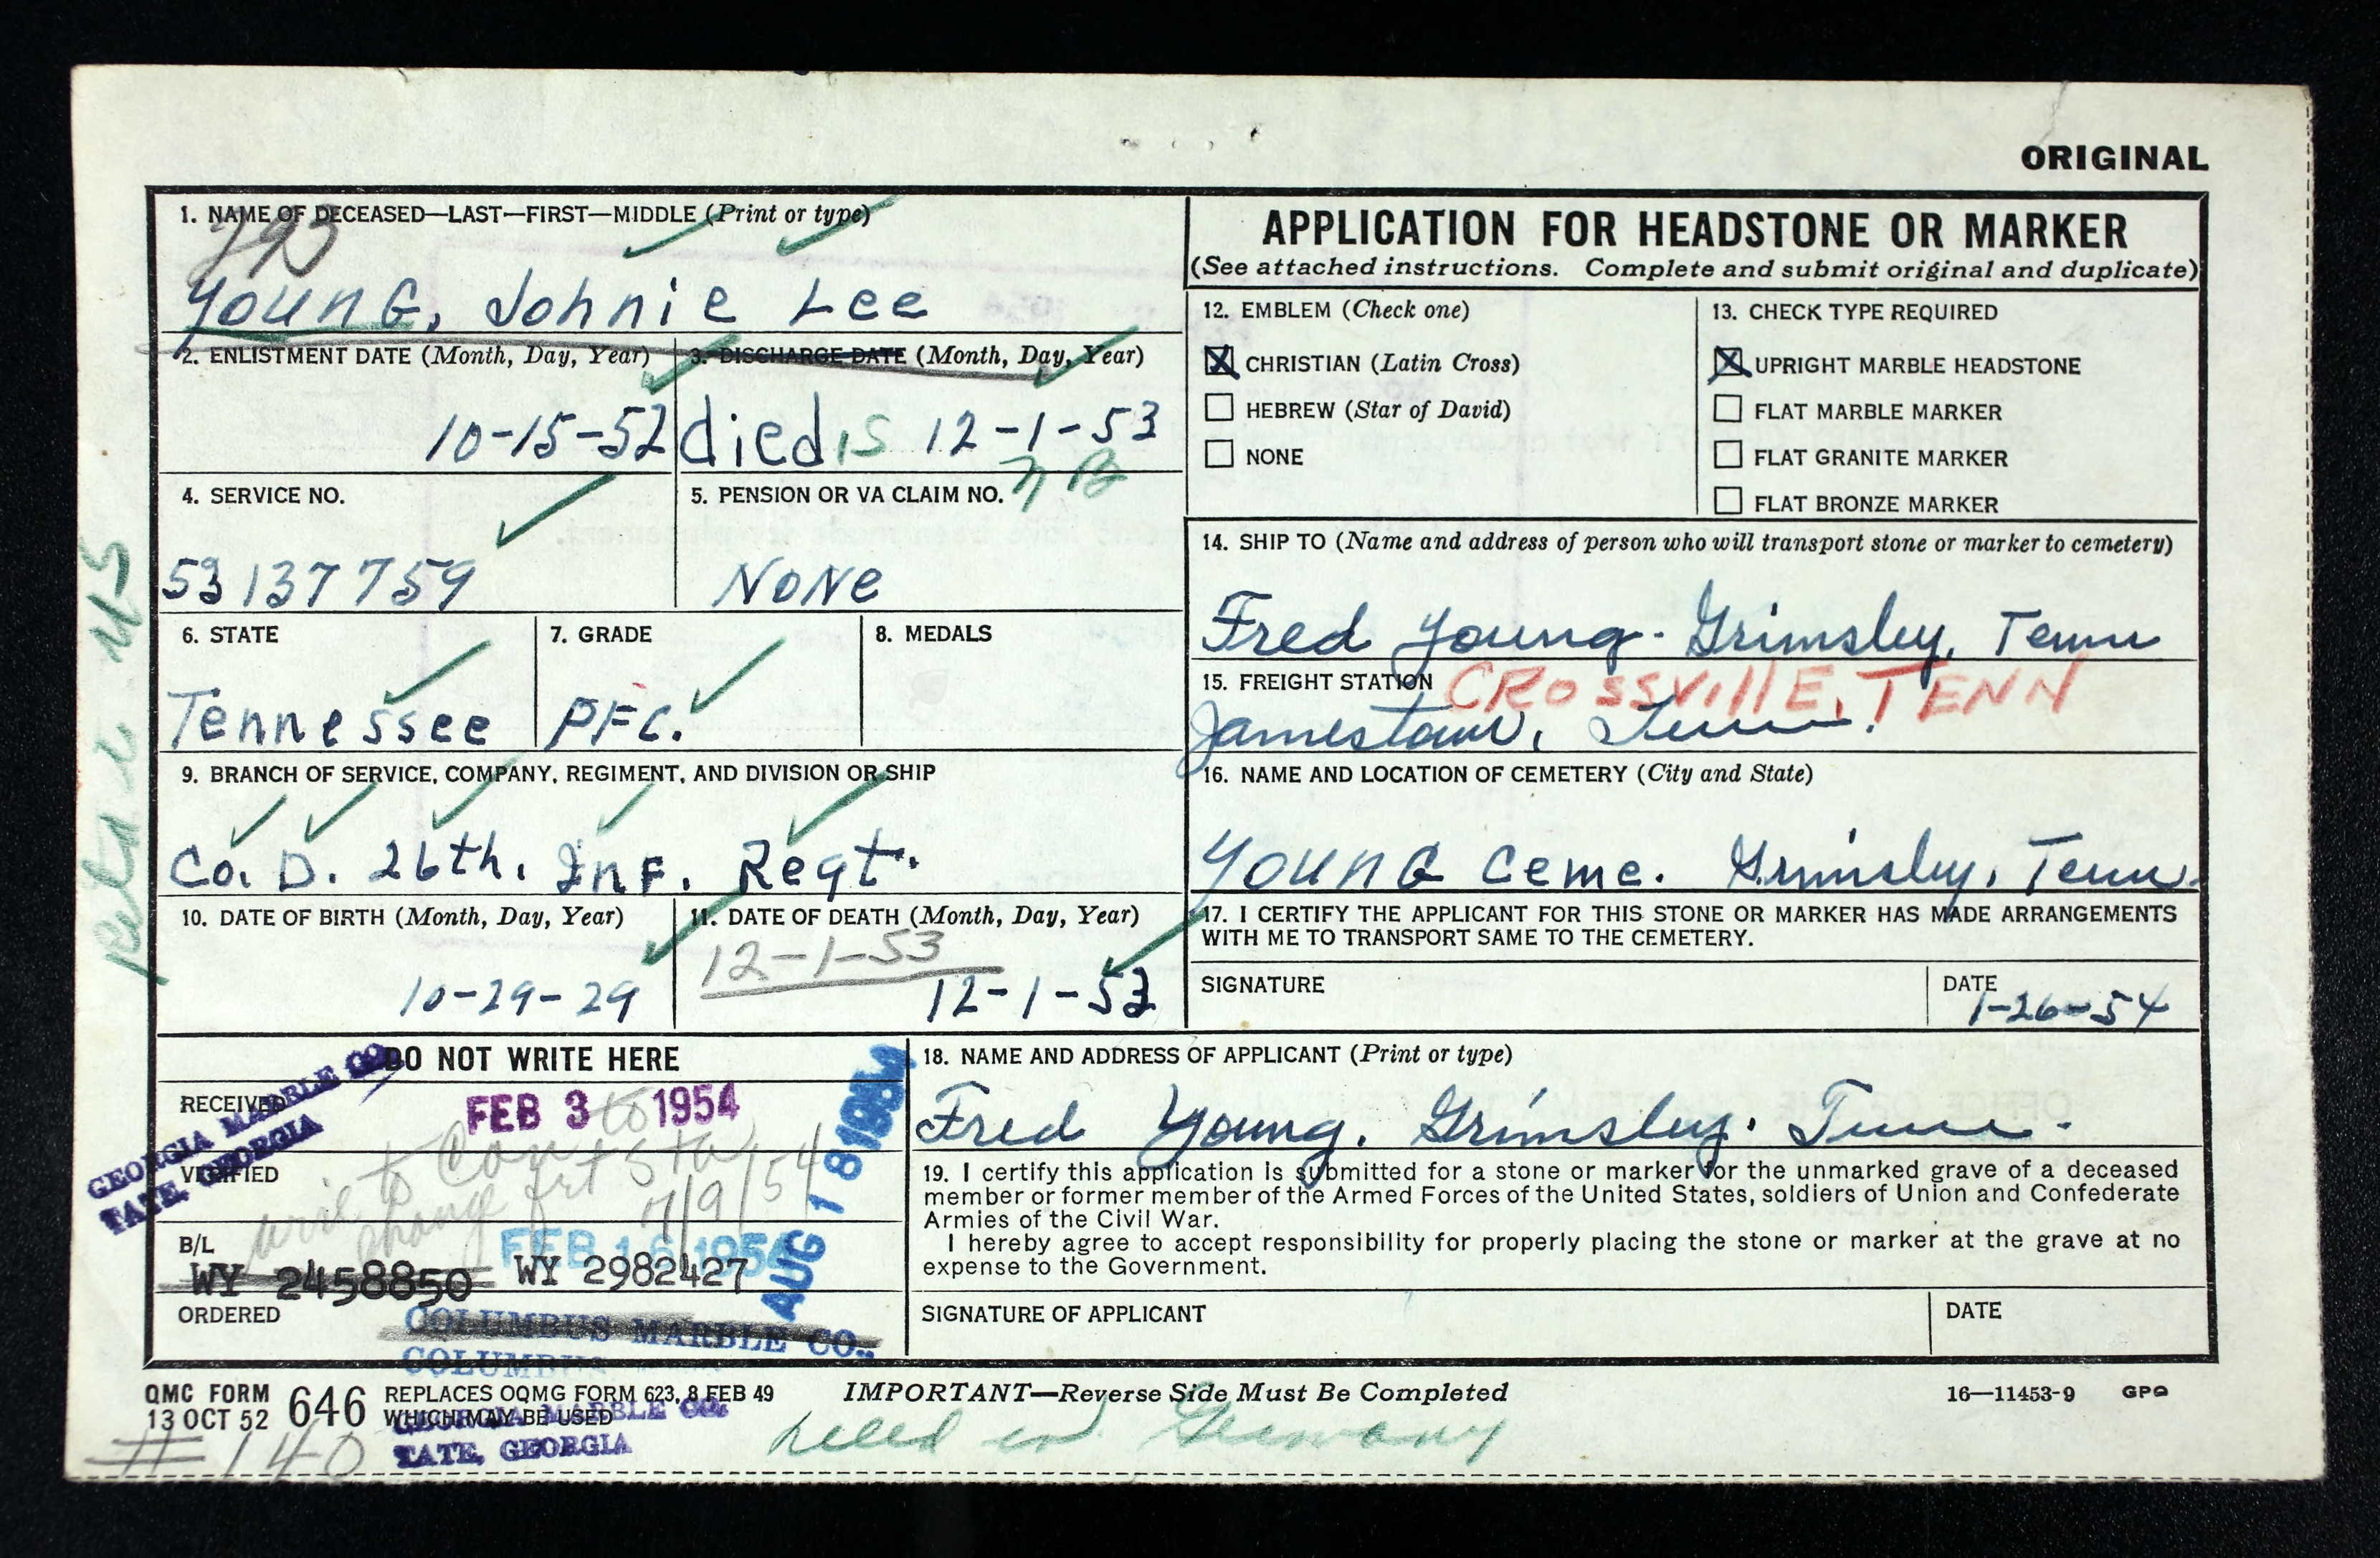 ORIGINAL
1. NAME OF DECEASED—LAST—FIRST—MIDDLE (Print or type)
793
YOUNG, Johnie Lee
2. ENLISTMENT DATE (Month, Day, Year)
10-15-52
3. DISCHARGE DATE (Month, Day, Year)
died is 12-1-53
4. SERVICE NO.
53137759
5. PENSION OR VA CLAIM NO.
NONe
6. STATE
Tennessee
7. GRADE
PFC.
8. MEDALS
9. BRANCH OF SERVICE, COMPANY, REGIMENT, AND DIVISION OR SHIP
Co. D. 26th. InF. Regt.
10. DATE OF BIRTH (Month, Day, Year)
10-29-29
11. DATE OF DEATH (Month, Day, Year)
12-1-53
12-1-53
APPLICATION FOR HEADSTONE OR MARKER
(See attached instructions. Complete and submit original and duplicate)
12. EMBLEM (Check one)
CHRISTIAN (Latin Cross)
HEBREW (Star of David)
NONE
13. CHECK TYPE REQUIRED
UPRIGHT MARBLE HEADSTONE
FLAT MARBLE MARKER
FLAT GRANITE MARKER
FLAT BRONZE MARKER
14. SHIP TO (Name and address of person who will transport stone or marker to cemetery)
Fred Young - Grimsley, Tenn
15. FREIGHT STATION
CROSSVILLE, TENN
Jamestown, Tenn.
16. NAME AND LOCATION OF CEMETERY (City and State)
YOUNG Ceme. Grimsley, Tenn.
17. I CERTIFY THE APPLICANT FOR THIS STONE OR MARKER HAS MADE ARRANGEMENTS
WITH ME TO TRANSPORT SAME TO THE CEMETERY.
SIGNATURE
DATE
1-26-54
DO NOT WRITE HERE
RECEIVED
FEB 3 1954
VERIFIED
to
change frt sta
7/9/54
B/L
FEB 16 1954
WY 2458850 WY 2982427
ORDERED
COLUMBUS MARBLE CO.,
COLUMBUS
AUG 18 1954
GEORGIA MARBLE CO.
TATE, GEORGIA
18. NAME AND ADDRESS OF APPLICANT (Print or type)
Fred Young. Grimsley. Tenn.
19. I certify this application is submitted for a stone or marker for the unmarked grave of a deceased
member or former member of the Armed Forces of the United States, soldiers of Union and Confederate
Armies of the Civil War.
I hereby agree to accept responsibility for properly placing the stone or marker at the grave at no
expense to the Government.
SIGNATURE OF APPLICANT
DATE
QMC FORM
13 OCT 52
646
REPLACES OQMG FORM 623, 8 FEB 49
WHICH MAY BE USED
IMPORTANT—Reverse Side Must Be Completed
16—11453-9 GPO
GEORGIA MARBLE CO.
TATE, GEORGIA
# 140
in Germany